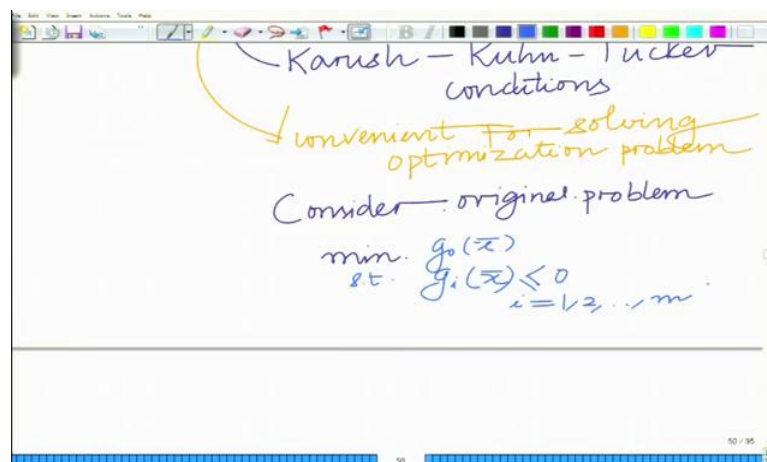 File Edit View Insert Actions Tools Help
B I
Karush - Kuhn - Tucker
conditions
convenient for solving
optimization problem
Consider original problem
min. g₀(x̄)
s.t. gᵢ(x̄) ≤ 0
i = 1, 2, .., m.
50 / 95
50